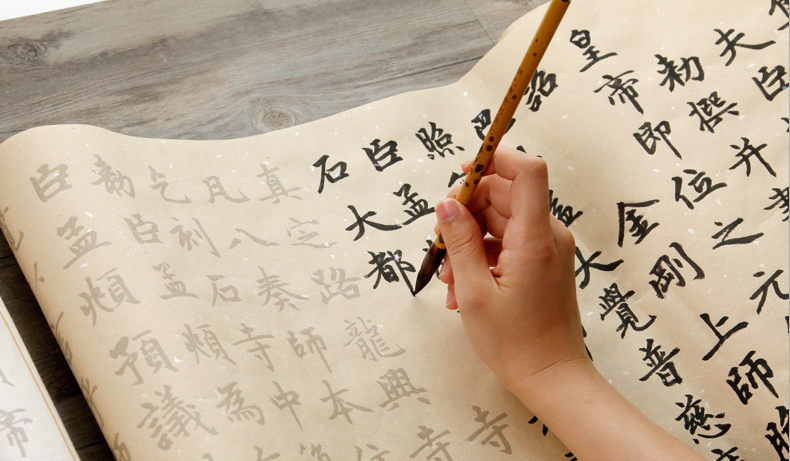 夫臣
敕撰并書
皇帝即位之元
詔金剛上師膽
巴大覺普慈
照
臣孟
石大都
寺
真定路龍興寺
凡八奏師本住
乞刻石寺中
敕臣孟頫為
臣孟頫預議
帝